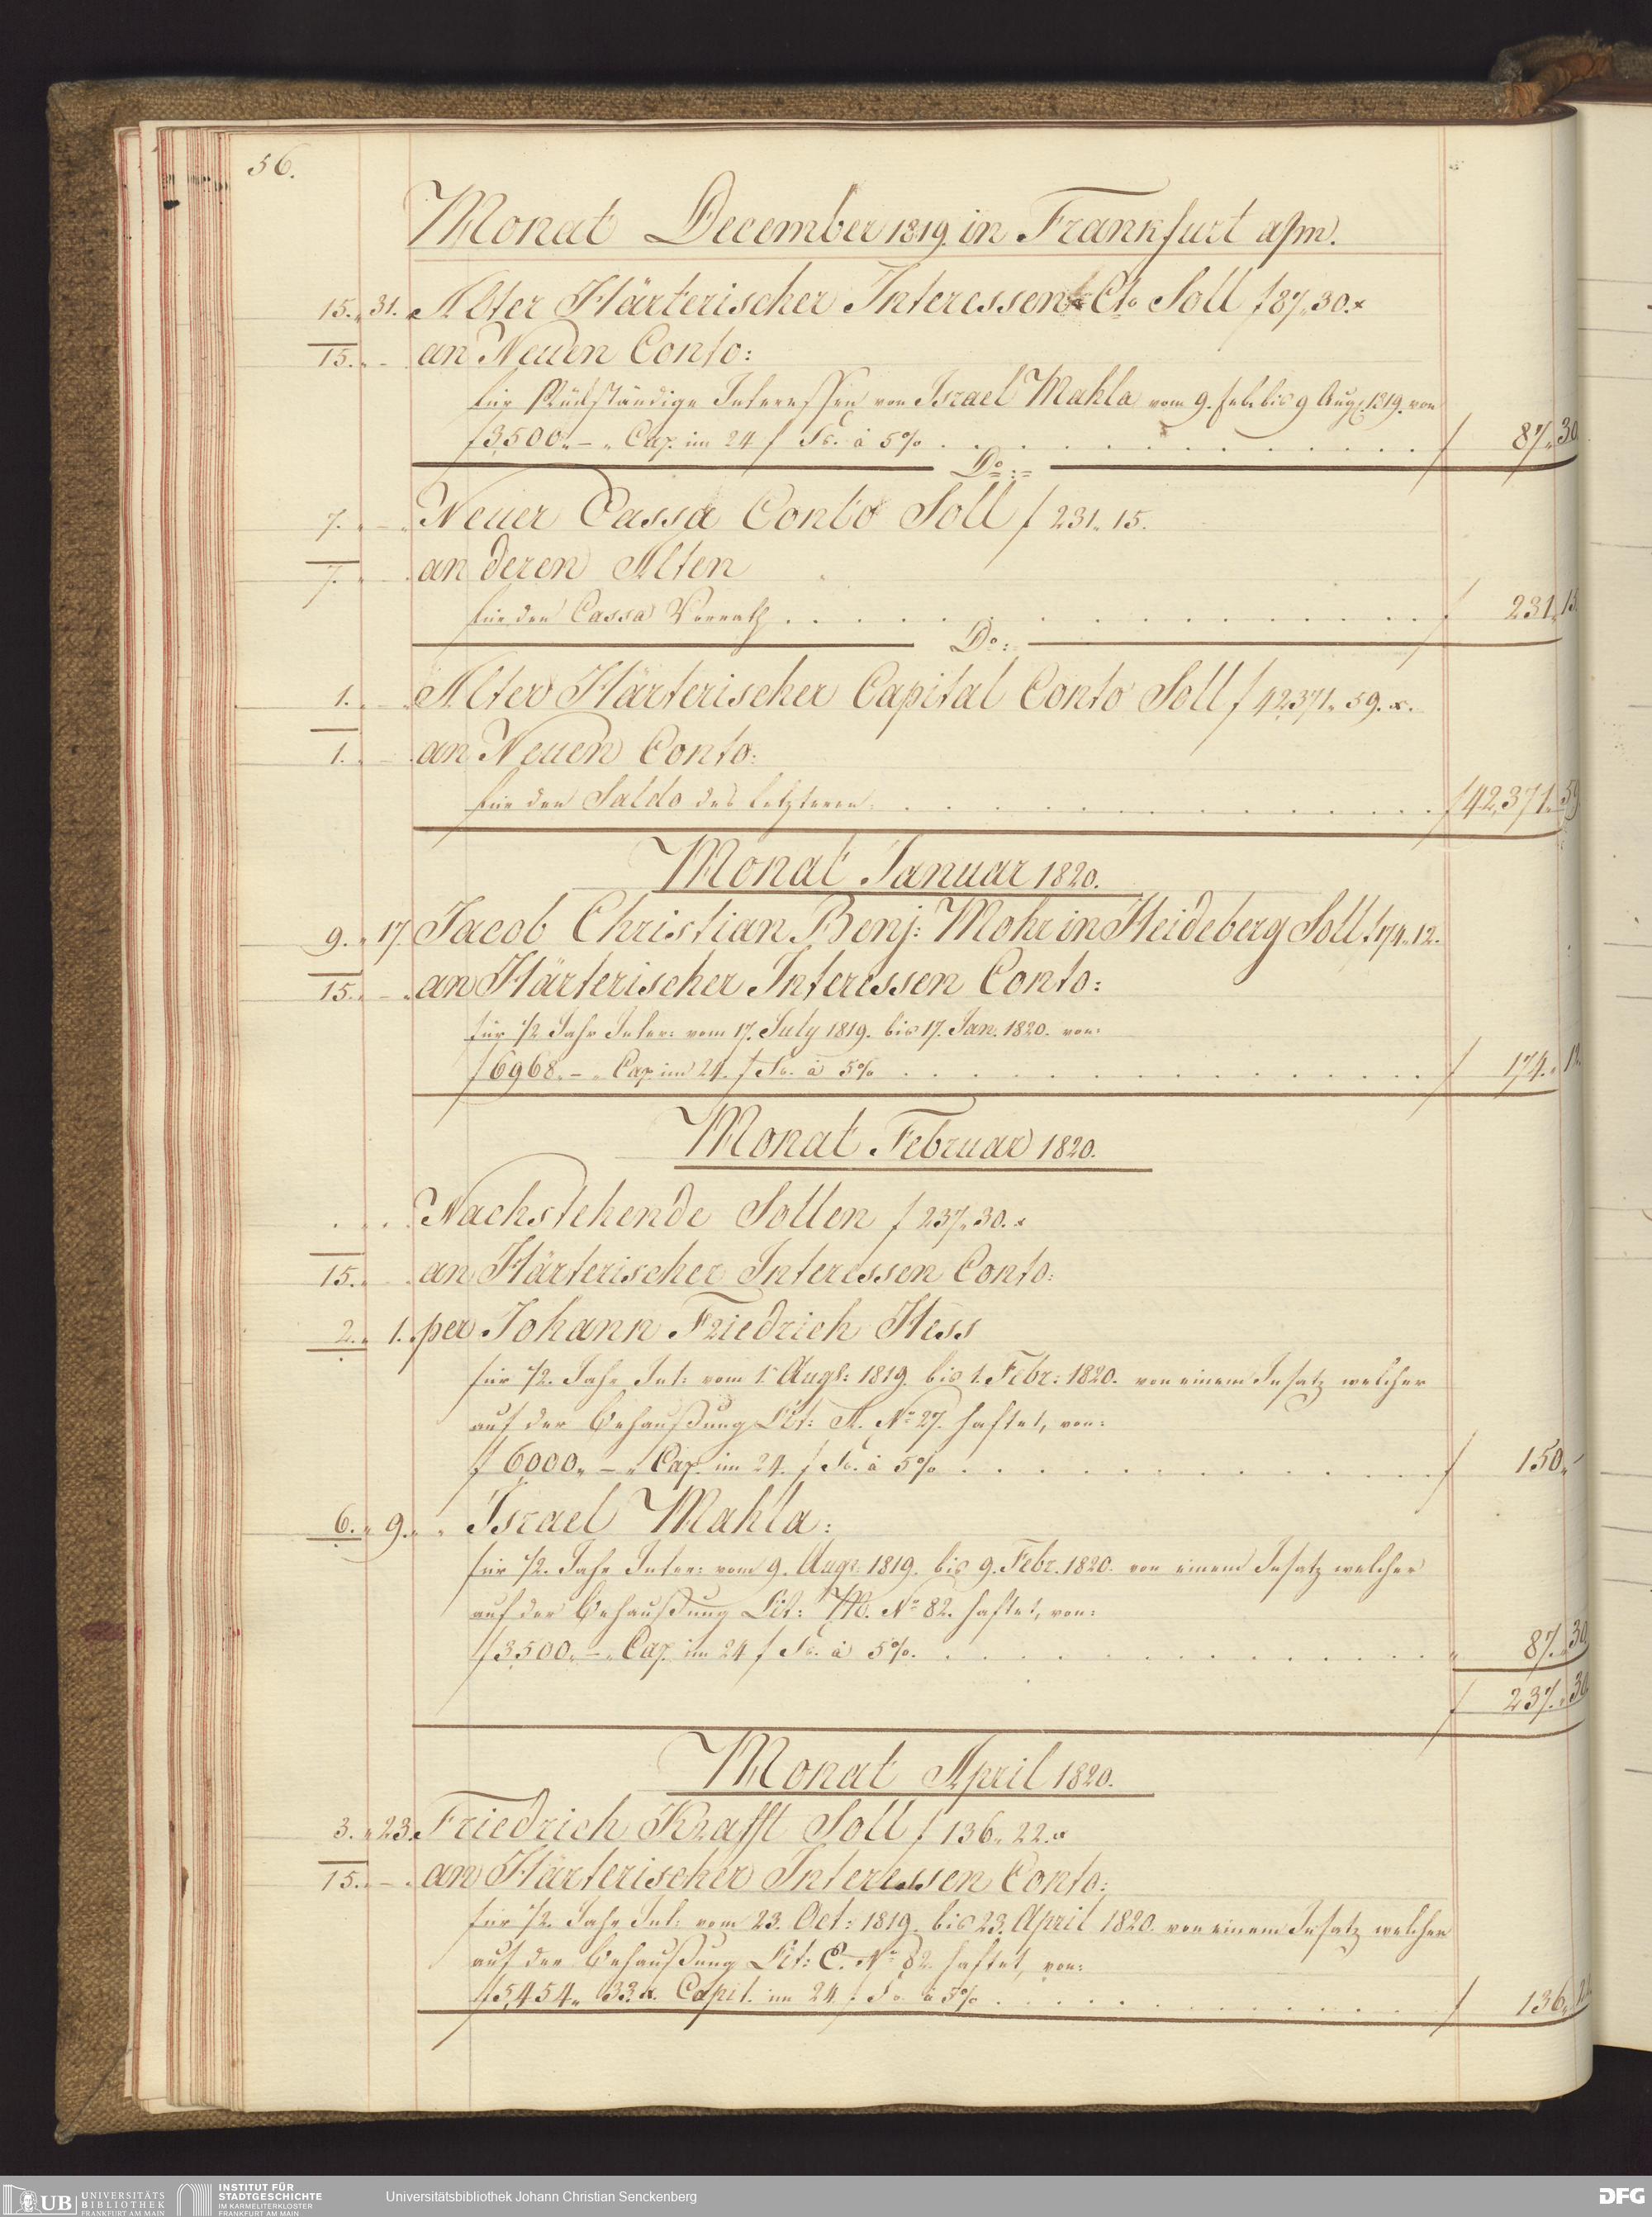 56.
Monat December 1819. in Frankfurt a/m.
15. 31. Alter Härterischer Interessen Cto Soll f 87„30.x
15. „ - an Neuen Conto:
für Rückständige Interessen von Israel Mahla vom 9. Feb. bis 9 Aug: 1819. von
f 3500„ – „ Cap. im 24 f Fs. à 5% . . . . f 87„ 30
Do:
7. „ - Neuer Cassa Conto Soll f 231„ 15.
7. „ an deren Alten
für den Cassa Vorrath . . . . f 231„ 15.
Do:
1. „ - Alter Härterischer Capital Conto Soll f 42,371„ 59. x.
1. „ - an Neuen Conto:
für den Saldo des letzteren. . . . . f 42,371„ 59
Monat Januar 1820.
9. „ 17. Jacob Christian Benj: Mohr in Heideberg Soll f 174„ 12.
15. „ - an Härterischer Interessen Conto:
für 1/2 Jahr Inter: vom 17. July 1819. bis 17. Jan. 1820. von:
f 6968„ – „ Cap. im 24. f Fs. à 5% . . . . f 174„ 12.
Monat Februar 1820.
. . . Nachstehende Sollen f 237„ 30. x
15. „ an Härterischer Interessen Conto:
2. „ 1. per Johann Friedrich Hess
für 1/2. Jahr Int: vom 1. Augs: 1819. bis 1. Febr: 1820. von einem Insatz welcher
auf der Behaußung Lit: A. No 27. haftet, von:
f 6000„ – „ Cap. im 24. f Fs. à 5% . . . . f 150„ -
6. „ 9. „ „ Israel Mahla:
für 1/2. Jahr Inter: vom 9. Augs: 1819. bis 9. Febr. 1820. von einem Insatz welcher
auf der Behaußung Lit: M. No 82. haftet, von:
f 3500„ – „ Cap. im 24 f Fs. à 5%. . . . . „ 87„ 30
f 237„ 30.
Monat April 1820.
3. „ 23. Friedrich Krafft Soll f 136„ 22. x
15. „ - an Härterischer Interessen Conto:
für 1/2. Jahr Int: vom 23. Oct: 1819. bis 23. April 1820. von einem Insatz welcher
auf der Behaußung Lit: C. No 82. haftet, von:
f 5,454„ 33. x. Capit. im 24. f Fs. à 5% . . . . f 136„
UB UNIVERSITÄTS BIBLIOTHEK FRANKFURT AM MAIN
INSTITUT FÜR STADTGESCHICHTE IM KARMELITERKLOSTER FRANKFURT AM MAIN
Universitätsbibliothek Johann Christian Senckenberg
DFG